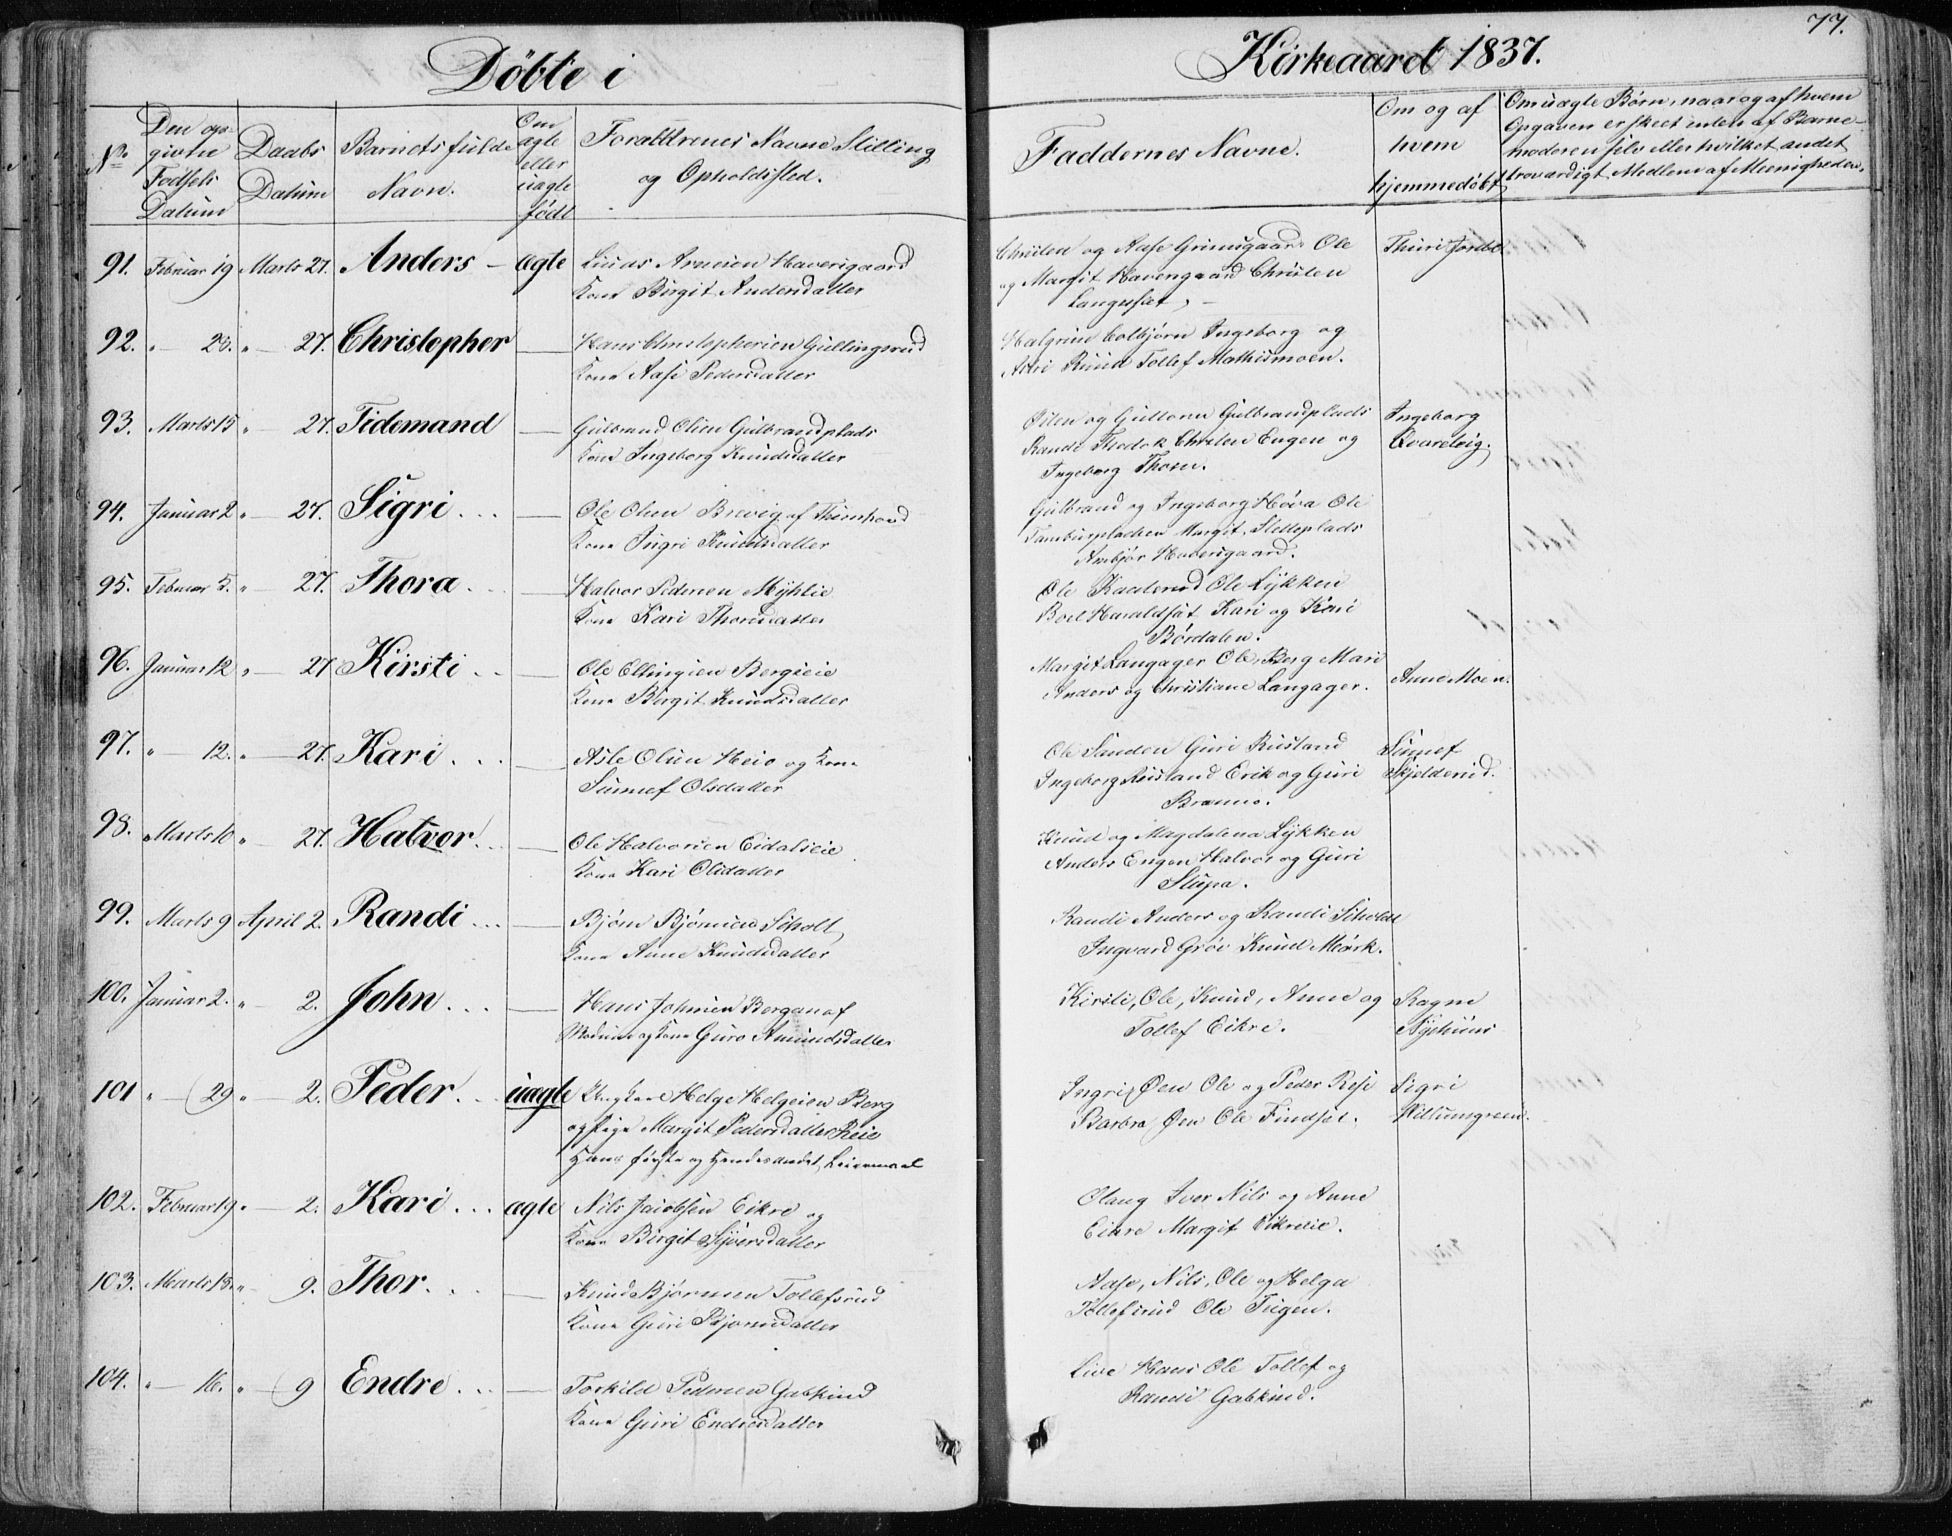 77.
Döbte i Kirkeaaret 1837.
No. Den opgivne Födsels Datum Daabs Datum Barnets fulde Navn. Om ægte eller uægte födt Forældrenes Navne Stilling og Opholdssted. Faddernes Navne. Om og af hvem hjemmedöbt Om uægte Börn, naar og af hvem Opgaven er skeet enten af Barnemoderen selv eller hvilket andet troværdigt Medlem af Meenigheden.
91. Februar 19 Marts 27. Anders – ægte Havensgaard
Kone Birgit Andersdatter
og Aase Grimsgaard Ole
og Margit Havensgaard Christen
Langeset, –
Thuri
92. " 23. " — 27. Christopher — Hans Christophersen Gullingsrud
Kone Aase Pedersdatter
Halgrim Colbjørn Ingeborg og
Ruud Tollef Mathismoen.
93. Marts 15 " 27. Tidemand — Gulbrand Olsen Gulbrandplads
Kone Ingeborg Knudsdatter
og Guttorm Gulbrandplads
Randi Christen Engen og
Ingeborg Thoen.
Ingeborg
94. Januar 2 " — 27. Sigri . . . — Ole Olsen Brevig af
Kone Ingri Knudsdatter
Gulbrand og Ingeborg Høva Ole
Margit Sletteplads
Ambjør Haversgaard.
95. Februar 5. " 27. Thora . . . — Halvor Pedersen Myhlie
Kone Kari Thorsdatter
Ole Ole Lykken
Boel Haraldsæt Kari og Kari
Børdalen.
96. Januar 12 " — 27 Kirsti . . — Ole Ellingsen Bergseie
Kone Birgit Knudsdatter
Margit Langager Ole Berg Mari
Anders og Christiane Langager.
Anne Moen.
97. " — 12. " — 27. Kari . . . — Asle Olsen Heio og Kone
Sunnef Olsdatter
Ole Sanden Guri Rusland
Ingeborg Rusland Erik og Guri
Bromo.
Sunnef
Skjelderud.
98. Marts 10 " 27. Halvor . . — Ole Halvorsen Eidalseie
Kone Kari Olsdatter
Knud og Magdalena Lykken
Anders Engen Halvor og Guri
Stupa.
99. Marts 9 April 2. Randi . . . — Bjørn Bjørnsen Scholt
Kone Anne Knudsdatter
Randi Anders og Randi Scholt
Ingvard Grøe Knud Mørk.
100. Januar 2. " — 2. John . . . — Hans Johnsen Bergan af
Modum og Kone Guro Amundsdatter
Kirsti, Ole, Knud, Anne og
Tollef Eikre.
Ragne
Nyhuus
101 " — 29 " — 2. Peder . . . uægte Ungkarl Helge Helgesen Berg
og Pige Margit Pedersdatter Reie
Hans første og Hendes andet Leiermaal
Ingri Øen Ole og Peder
Barbro Øen Ole Findsæt.
Sigri
102. Februar 19 " — 2. Kari . . . ægte Nils Jacobsen Eikre og
Kone Birgit Syversdatter
Olaug Iver Nils og Anne
Eikre Margit Eikreeie.
103. Marts 13. " 9. Thor . . . — Knud Bjørnsen Tollefsrud
Kone Guri Bjørnsdatter
Aase, Nils, Ole og Helga
Tollefsrud Ole Tiigen.
104. " — 16. " — 9 Endre . . . — Torkild Pedersen Gabsrud
Kone Guri Endresdatter
Live Hans Ole Tollef og
Randi Gabsrud.